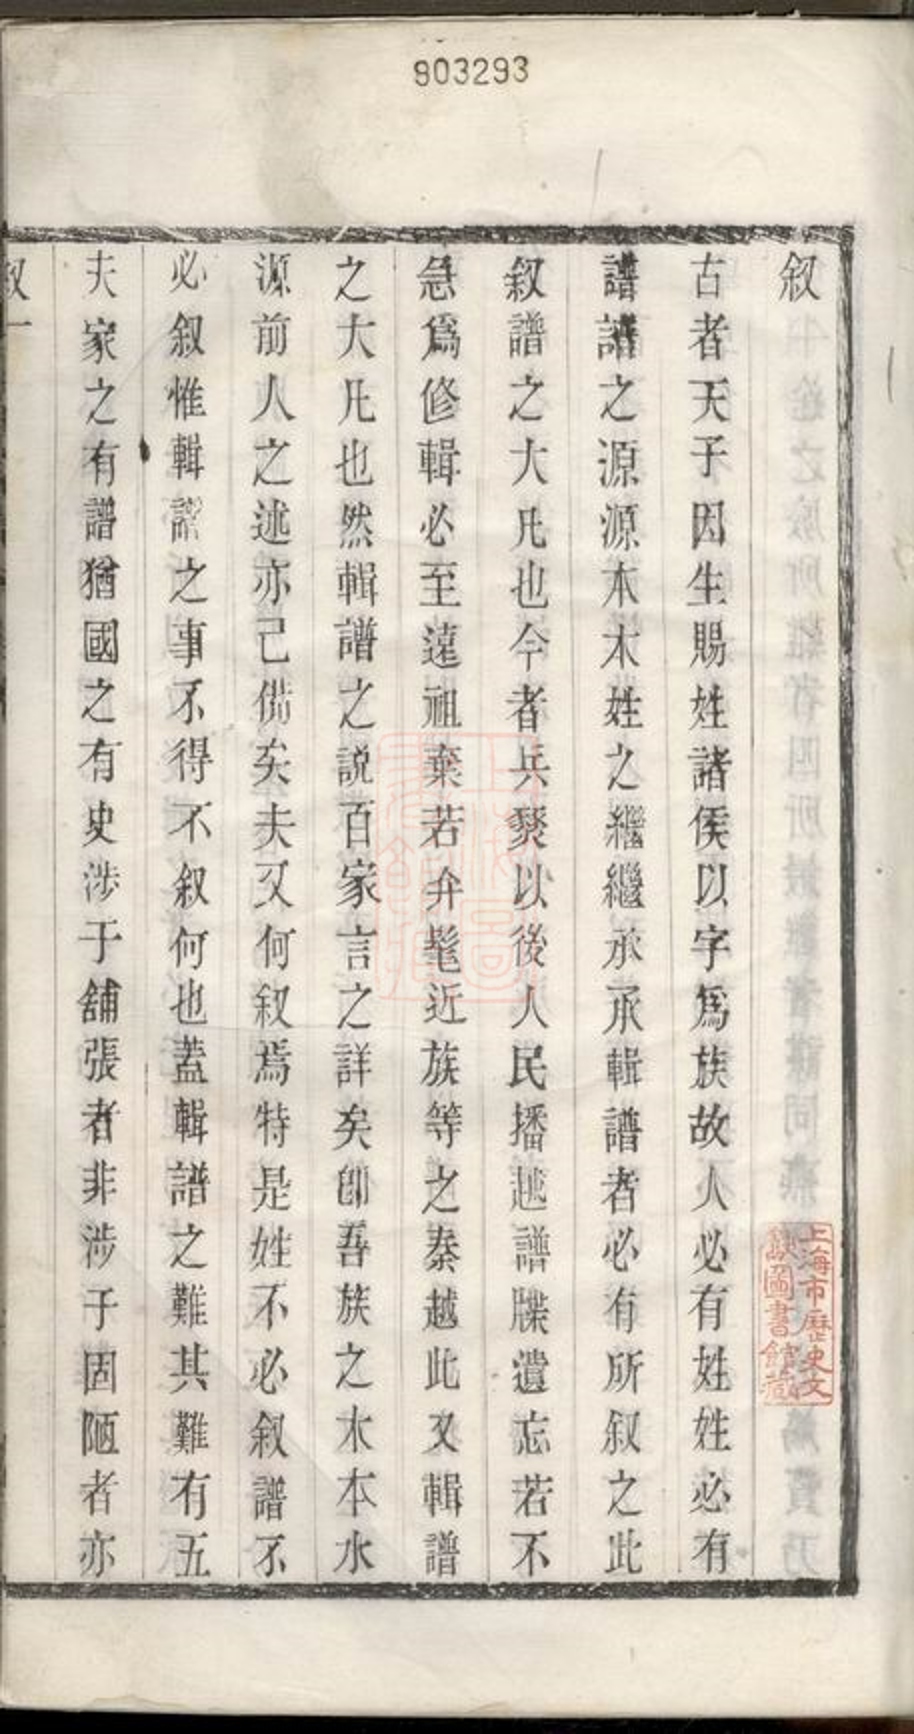 903293
叙
古者天子因生賜姓諸侯以字爲族故人必有姓姓必有
譜譜之源源本木姓之繼繼承承輯譜者必有所叙之此
叙譜之大凡也今者兵燹以後人民播越譜牒遺忘若不
急爲修輯必至遠祖棄若弁髦近族等之秦越此又輯譜
之大凡也然輯譜之説百家言之詳矣卽吾族之木本水
源前人之述亦己備矣夫又何叙焉特是姓不必叙譜不
必叙惟輯譜之事不得不叙何也蓋輯譜之難其難有五
夫家之有譜猶國之有史涉于舖張者非涉于固陋者亦
叙一
上海市歷史文
獻圖書館藏
上海圖
書館藏